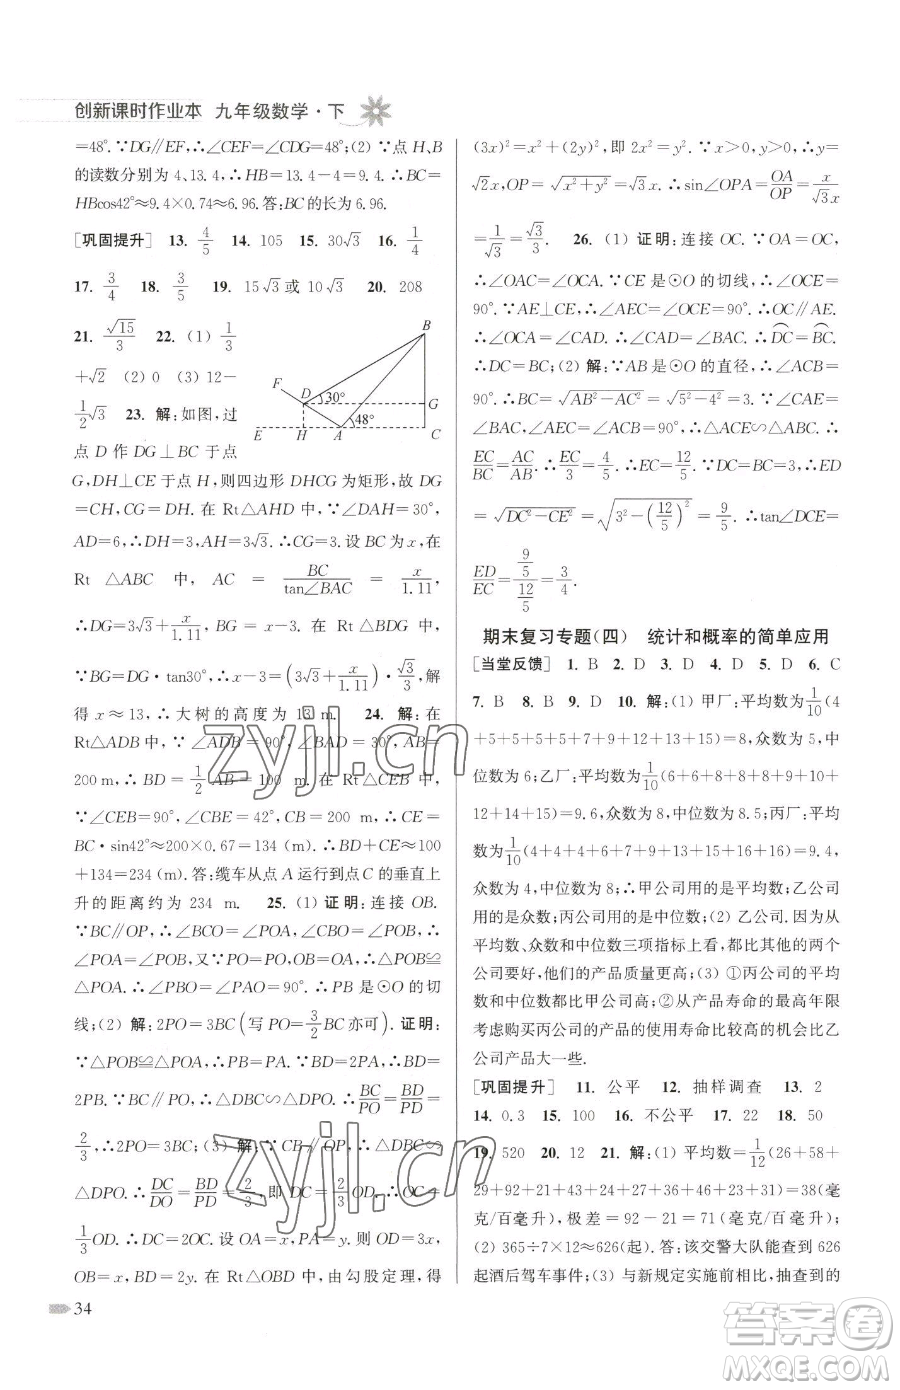 创新课时作业本 九年级数学·下
=48°. ∵DG∥EF,∴∠CEF=∠CDG=48°;(2) ∵点H、B
的读数分别为4、13.4,∴HB=13.4-4=9.4. ∴BC=
HBcos42°≈9.4×0.74≈6.96. 答:BC的长为6.96.
[巩固提升] 13. 4/5 14. 105 15. 30√3 16. 1/4
17. 3/4 18. 3/5 19. 15√3或10√3 20. 208
21. √15/3 22. (1) 1/3
+√2 (2) 0 (3) 12-
1/2√3 23. 解:如图,过
点D作DG⊥BC于点
B
F
D
30°
G
48°
E
H
A
C
G,DH⊥CE于点H,则四边形DHCG为矩形,故DG
=CH,CG=DH. 在Rt△AHD中,∵∠DAH=30°,
AD=6,∴DH=3,AH=3√3. ∴CG=3. 设BC为x,在
Rt△ABC中,AC=BC/tan∠BAC=x/1.11,
∴DG=3√3+x/1.11,BG=x-3. ∵在Rt△BDG中,
∵BG=DG·tan30°,∴x-3=(3√3+x/1.11)·√3/3,解
得x≈13,∴大树的高度为13 m. 24. 解:在
Rt△ADB中,∵∠ADB=90°,∠BAD=30°,AB=
200 m,∴BD=1/2AB=100 m. 在Rt△CEB中,
∵∠CEB=90°,∠CBE=42°,CB=200 m,∴CE=
BC·sin42°≈200×0.67=134 (m). ∴BD+CE≈100
+134=234 (m). 答:缆车从点A运行到点C的垂直上
升的距离约为234 m. 25. (1) 证明:连接OB.
∵BC∥OP,∴∠BCO=∠POA,∠CBO=∠POB.
又∵OC=OB,∴∠BCO=∠CBO. ∴∠POB=
∠POA. 又∵PO=PO,OB=OA,∴△POB≌
△POA. ∴∠PBO=∠PAO=90°. ∴PB是⊙O的切
线;(2) 解:2PO=3BC(写PO=3/2BC亦可). 证明:
∵△POB≌△POA,∴PB=PA. ∵BD=2PA,∴BD=
2PB. ∵BC∥PO,∴△DBC∽△DPO. ∴BC/PO=BD/PD=
2/3,∴2PO=3BC;(3) 解:∵CB∥OP,∴△DBC∽
△DPO. ∴DC/DO=BD/PD=2/3,即DC=2/3OD. ∴OC=
1/3OD. ∴DC=2OC. 设OA=x,PA=y. 则OD=3x,
OB=x,BD=2y. 在Rt△OBD中,由勾股定理,得
(3x)²=x²+(2y)²,即2x²=y². ∵x>0,y>0,∴y=
√2x,OP=√(x²+y²)=√3x. ∴sin∠OPA=OA/OP=x/√3x
=1/√3=√3/3. 26. (1) 证明:连接OC. ∵OA=OC,
∴∠OAC=∠OCA. ∵CE是⊙O的切线,∴∠OCE=
90°. ∵AE⊥CE,∴∠AEC=∠OCE=90°. ∴OC∥AE.
∴∠OCA=∠CAD. ∴∠CAD=∠BAC. ∴DC=BC.
∴DC=BC;(2) 解:∵AB是⊙O的直径,∴∠ACB=
90°. ∴BC=√(AB²-AC²)=√(5²-4²)=3. ∵∠CAE=
∠BAC,∠AEC=∠ACB=90°,∴△ACE∽△ABC. ∴
EC/BC=AC/AB. ∴EC/3=4/5. ∴EC=12/5. ∵DC=BC=3,∴ED
=√(DC²-CE²)=√(3²-(12/5)²)=9/5. ∴tan∠DCE=
ED/EC=(9/5)/(12/5)=3/4.
期末复习专题(四) 统计和概率的简单应用
[当堂反馈] 1. B 2. D 3. D 4. D 5. D 6. C
7. B 8. B 9. D 10. 解:(1) 甲厂:平均数为1/10(4
+5+5+5+5+7+9+12+13+15)=8,众数为5,中
位数为6;乙厂:平均数为1/10(6+6+8+8+8+9+10+
12+14+15)=9.6,众数为8,中位数为8.5;丙厂:平均
数为1/10(4+4+4+6+7+9+13+15+16+16)=9.4,
众数为4,中位数为8;∴甲公司用的是平均数;乙公司
用的是众数;丙公司用的是中位数;(2) 乙公司. 因为从
平均数、众数和中位数三项指标上看,都比其他的两个
公司要好,他们的产品质量更高;(3) ①丙公司的平均
数和中位数都比甲公司高;②从产品寿命的最高年限
考虑购买丙公司的产品的使用寿命比较高的机会比乙
公司产品大一些.
[巩固提升] 11. 公平 12. 抽样调查 13. 2
14. 0.3 15. 100 16. 不公平 17. 22 18. 50
19. 520 20. 12 21. 解:(1) 平均数=1/12(26+58+
29+92+21+43+24+27+36+46+23+31)=38(毫
克/百毫升),极差=92-21=71(毫克/百毫升);
(2) 365÷7×12≈626(起). 答:该交警大队能查到626
起酒后驾车事件;(3) 与新规定实施前相比,抽查到的
34
zyjl.cn
zyjl.cn
答案圈
MXQE.COM